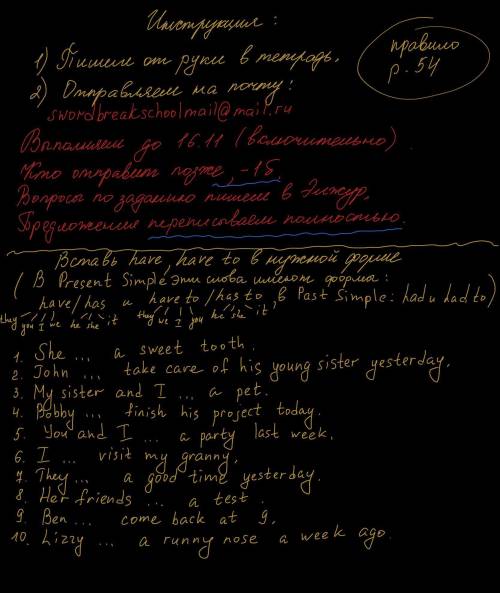 Инструкция:
1) Пишем от руки в тетрадь.
2) Отправляем на почту:
swordbreakschoolmail@mail.ru
правило
p. 54
Выполняем до 16.11 (включительно)
Кто отправит позже, -1б.
Вопросы по заданию пишем в Элжур.
Предложения переписываем полностью.
Вставь have, have to в нужной форме
(В Present Simple эти слова имеют формы:
have/has и have to/has to, в Past Simple: had и had to)
they you I we he she it they we I you he she it
1. She ... a sweet tooth.
2. John ... take care of his young sister yesterday.
3. My sister and I ... a pet.
4. Bobby ... finish his project today.
5. You and I ... a party last week.
6. I ... visit my granny.
7. They ... a good time yesterday.
8. Her friends ... a test.
9. Ben ... come back at 9.
10. Lizzy ... a runny nose a week ago.